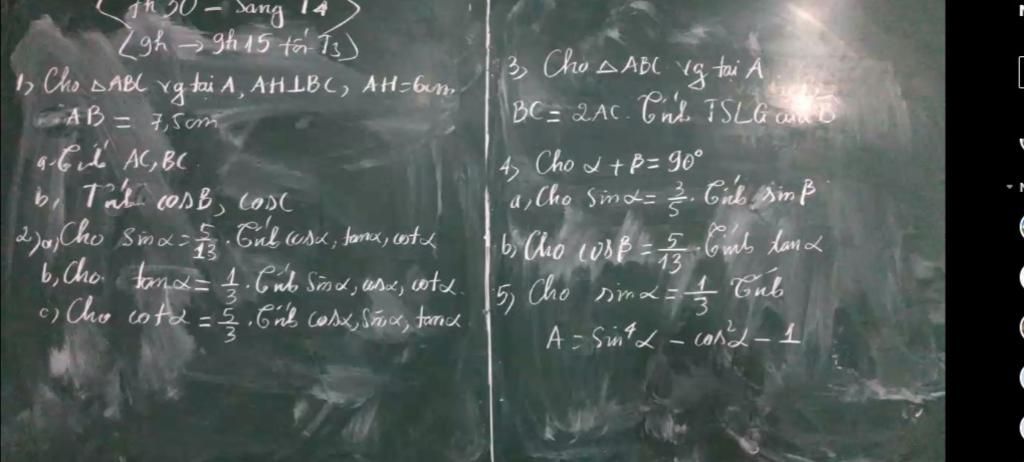 7h30 - Sáng T4
9h → 9h15 tối T3
1, Cho △ABC vg tại A, AH⊥BC, AH=6cm,
AB = 7,5cm
a. Tính AC, BC
b, Tính cosB, cosC
2) a, Cho sinα = 5/13. Tính cosα, tanα, cotα
b, Cho tanα = 1/3. Tính Sinα, cosα, cotα.
c) Cho cotα = 5/3. Tính cosα, Sinα, tanα
3, Cho △ABC vg tại A
BC = 2AC. Tính TSLG của B̂
4, Cho α + β = 90°
a, Cho Sinα = 3/5. Tính sinβ
b, Cho cosβ = 5/13. Tính tanα
5, Cho sinα = 1/3 Tính
A = Sin⁴α - cos²α - 1